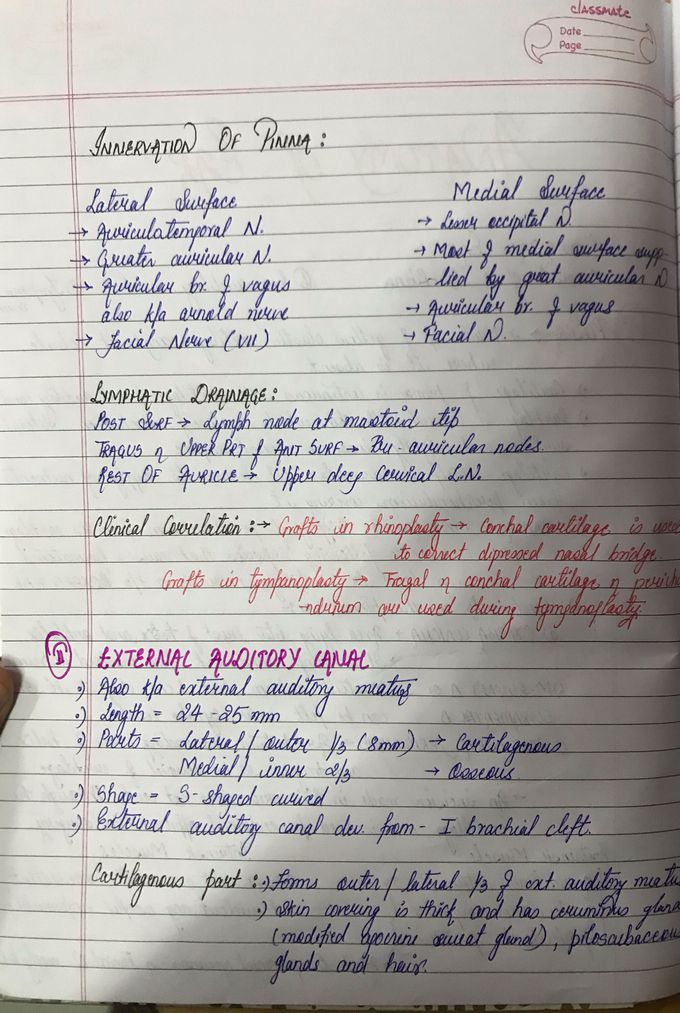 classmate
Date
Page
INNERVATION OF PINNA :
Lateral Surface
→ Auriculotemporal N.
→ Greater auricular N.
→ Auricular br. of vagus
also k/a arnold nerve
→ Facial Nerve (VII)
Medial Surface
→ Lesser occipital N.
→ Most of medial surface supp-
-lied by great auricular N
→ Auricular br. of vagus
→ Facial N.
LYMPHATIC DRAINAGE :
POST SURF → Lymph node at mastoid tip
TRAGUS n UPPER PRT of ANT SURF → Pre-auricular nodes.
REST OF AURICLE → Upper deep Cervical L.N.
Clinical Correlation :→ Grafts in rhinoplasty → Conchal cartilage is used
to correct depressed nasal bridge.
Grafts in tympanoplasty → Tragal n conchal cartilage n pericho
-ndrium are used during tympanoplasty.
I EXTERNAL AUDITORY CANAL
•) Also k/a external auditory meatus
•) Length = 24-25 mm
•) Parts = Lateral / outer 1/3 (8mm) → Cartilagenous
Medial / inner 2/3 → Osseous.
•) Shape = S-shaped curved
•) External auditory canal dev. from - I brachial cleft.
Cartilagenous part : •) Forms outer / lateral 1/3 of ext. auditory meatus
•) Skin covering is thick and has ceruminus gland
(modified apocrine sweat gland), pilosabaceous
glands and hair.